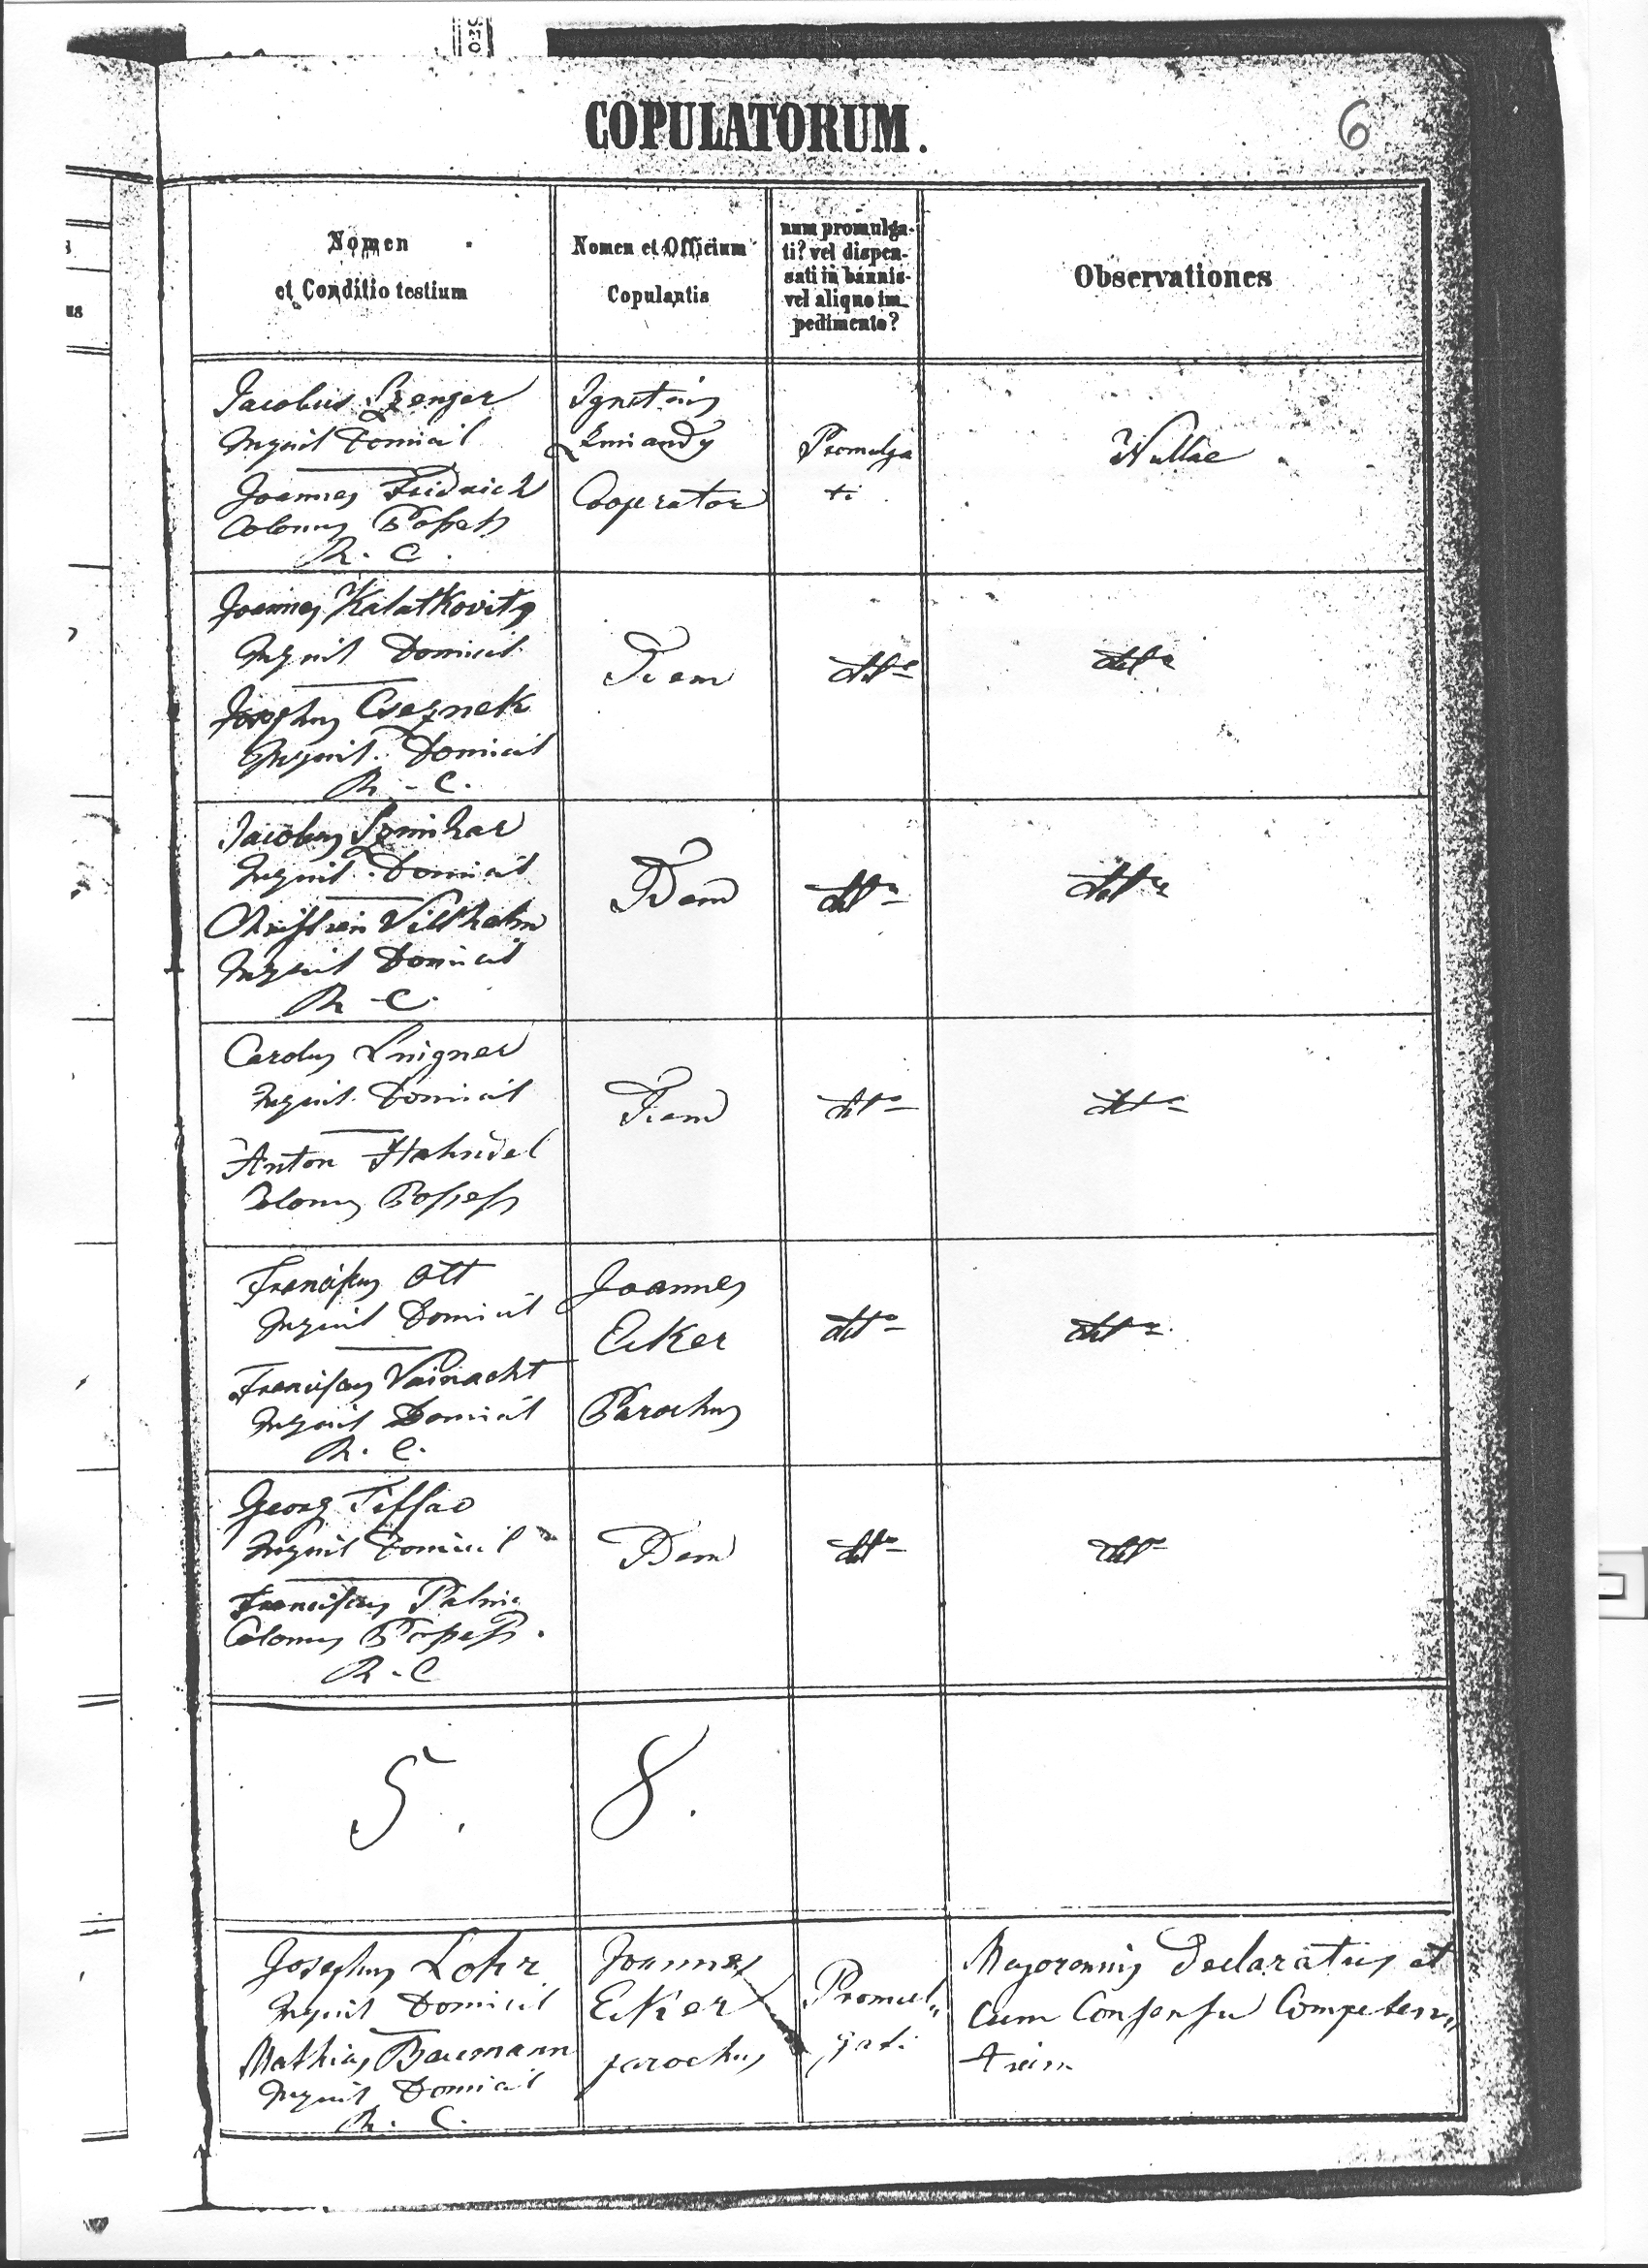 COPULATORUM.
6
Nomen
et Conditio testium
Nomen et Officium
Copulantis
num promulga-
ti? vel dispen-
sati in bannis
vel aliquo im-
pedimento?
Observationes
Jacobus Szenger
Inquil Domicil
Joannes Fridrich
Colonus Possess
R. C.
Ignatius
Cooperator
Promulga
ti
Nullae
Joannes Kalatkovits
Inquil Domicil
Josephus Cseznek
Inquil. Domicil
R. C.
Idem
detto
detto
Jacobus
Inquil. Domicil
Christian Villhelm
Inquil Domicil
R. C.
Idem
detto
detto
Carolus Lingner
Inquil. Domicil
Anton Hahndel
Colonus Possess
Idem
detto
detto
Franciscus Ott
Inquil Domicil
Franciscus Vainacht
Inquil Domicil
R. C.
Joannes
Eiker
Parochus
detto
detto
Georg
Inquil Domicil
Franciscus
Colonus Possess.
R. C
Idem
detto
detto
5.
8.
Josephus Lohr
Inquil Domicil
Mathias Baumann
Inquil Domicil
R. C.
Joannes
Eiker
parochus
Promul„
gati
Majorennis Declaratus et
Cum Consensu Competen„
tium